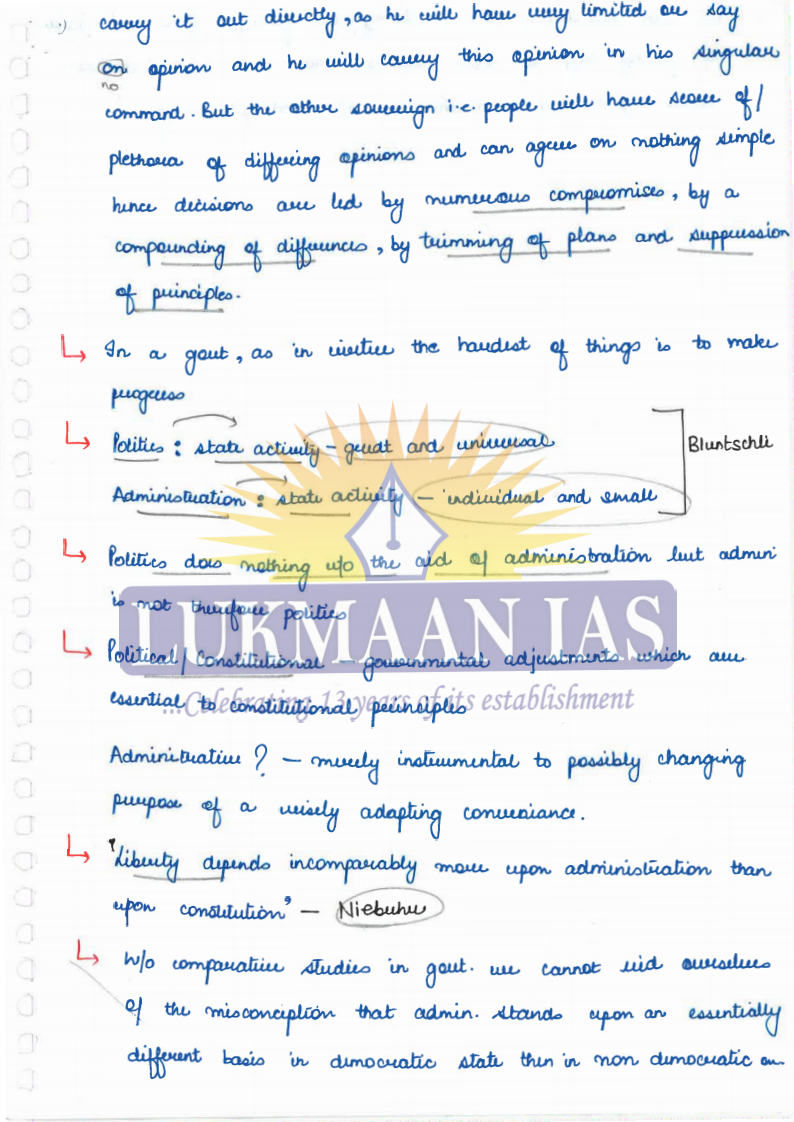 carry it out directly, as he will have very limited or say
on opinion and he will carry this opinion in his singular
no
command. But the other sovereign i.e. people will have score of/
plethora of differing opinions and can agree on nothing simple
hence decisions are led by numerous compromises, by a
compounding of differences, by trimming of plans and suppression
of principles.
In a govt, as in virtue the hardest of things is to make
progress
Politics : state activity - great and universal
Bluntschli
Administration : state activity - individual and small
Politics does nothing w/o the aid of administration but admin
is not therefore politics
LUKMAAN IAS
Political/Constitutional - governmental adjustments which are
essential to constitutional principles
...Celebrating 13 years of its establishment
Administrative ? - merely instrumental to possibly changing
purpose of a wisely adapting conveniance.
"Liberty depends incomparably more upon administration than
upon constitution" - Niebuhr
W/o comparative studies in govt. we cannot rid ourselves
of the misconception that admin. stands upon an essentially
different basis in democratic state then in non democratic on